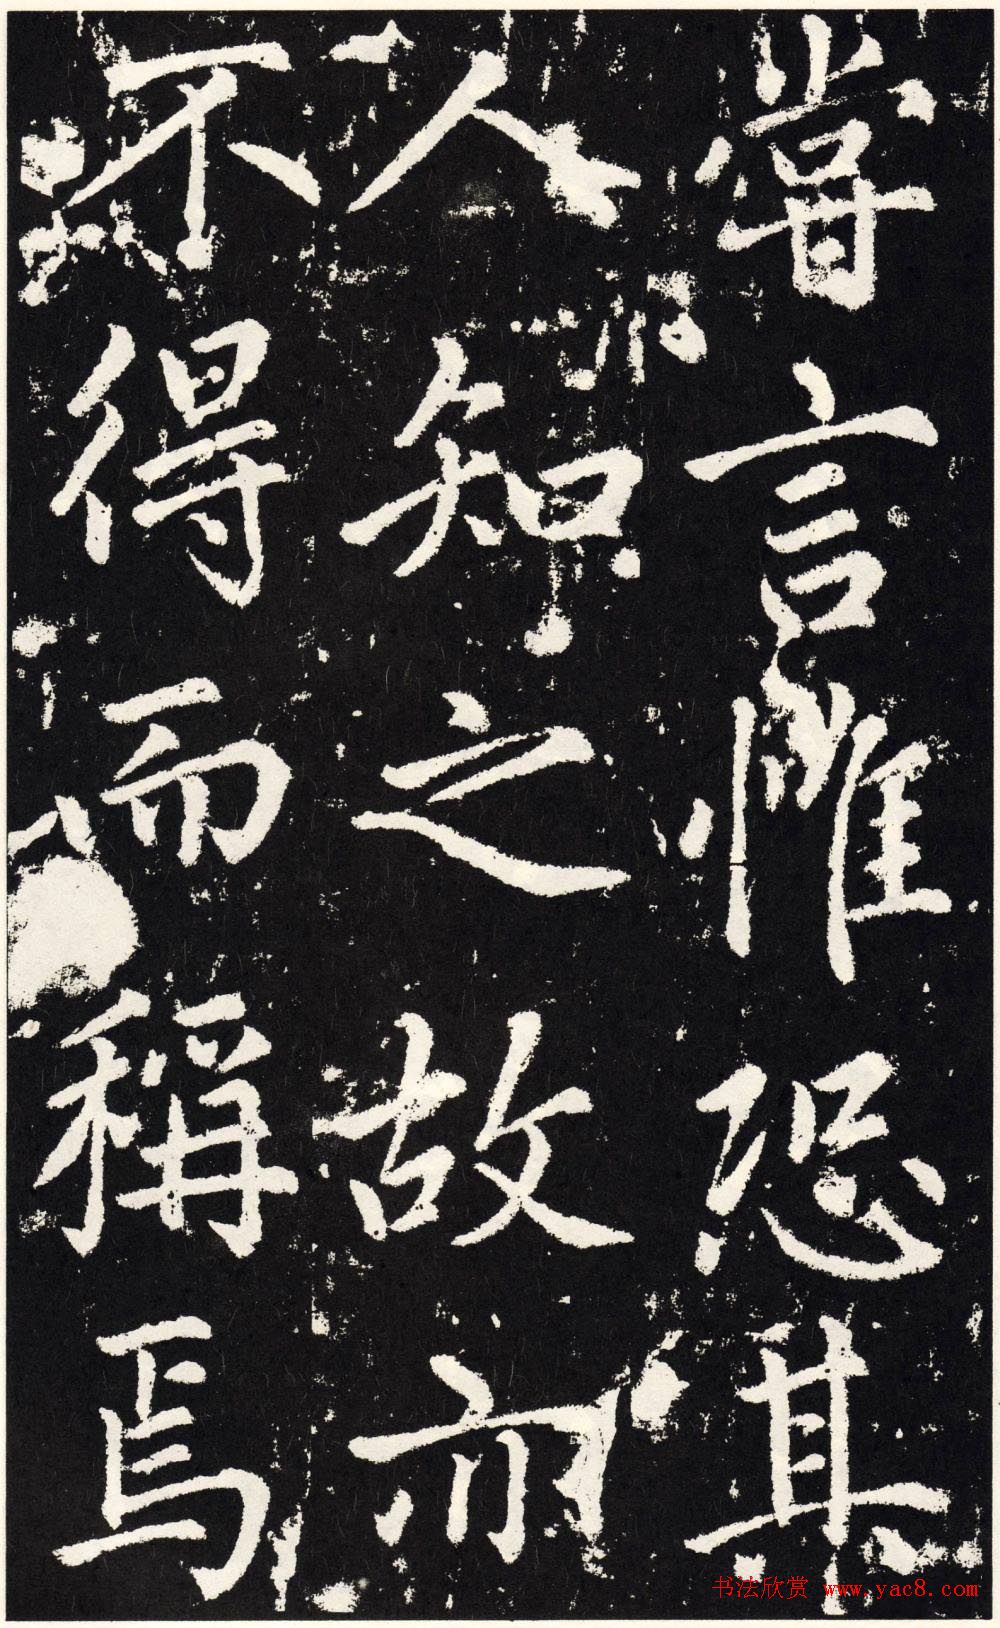 尝言惟恐其
人知之故亦
不得而稱焉
书法欣赏 www.yac8.com